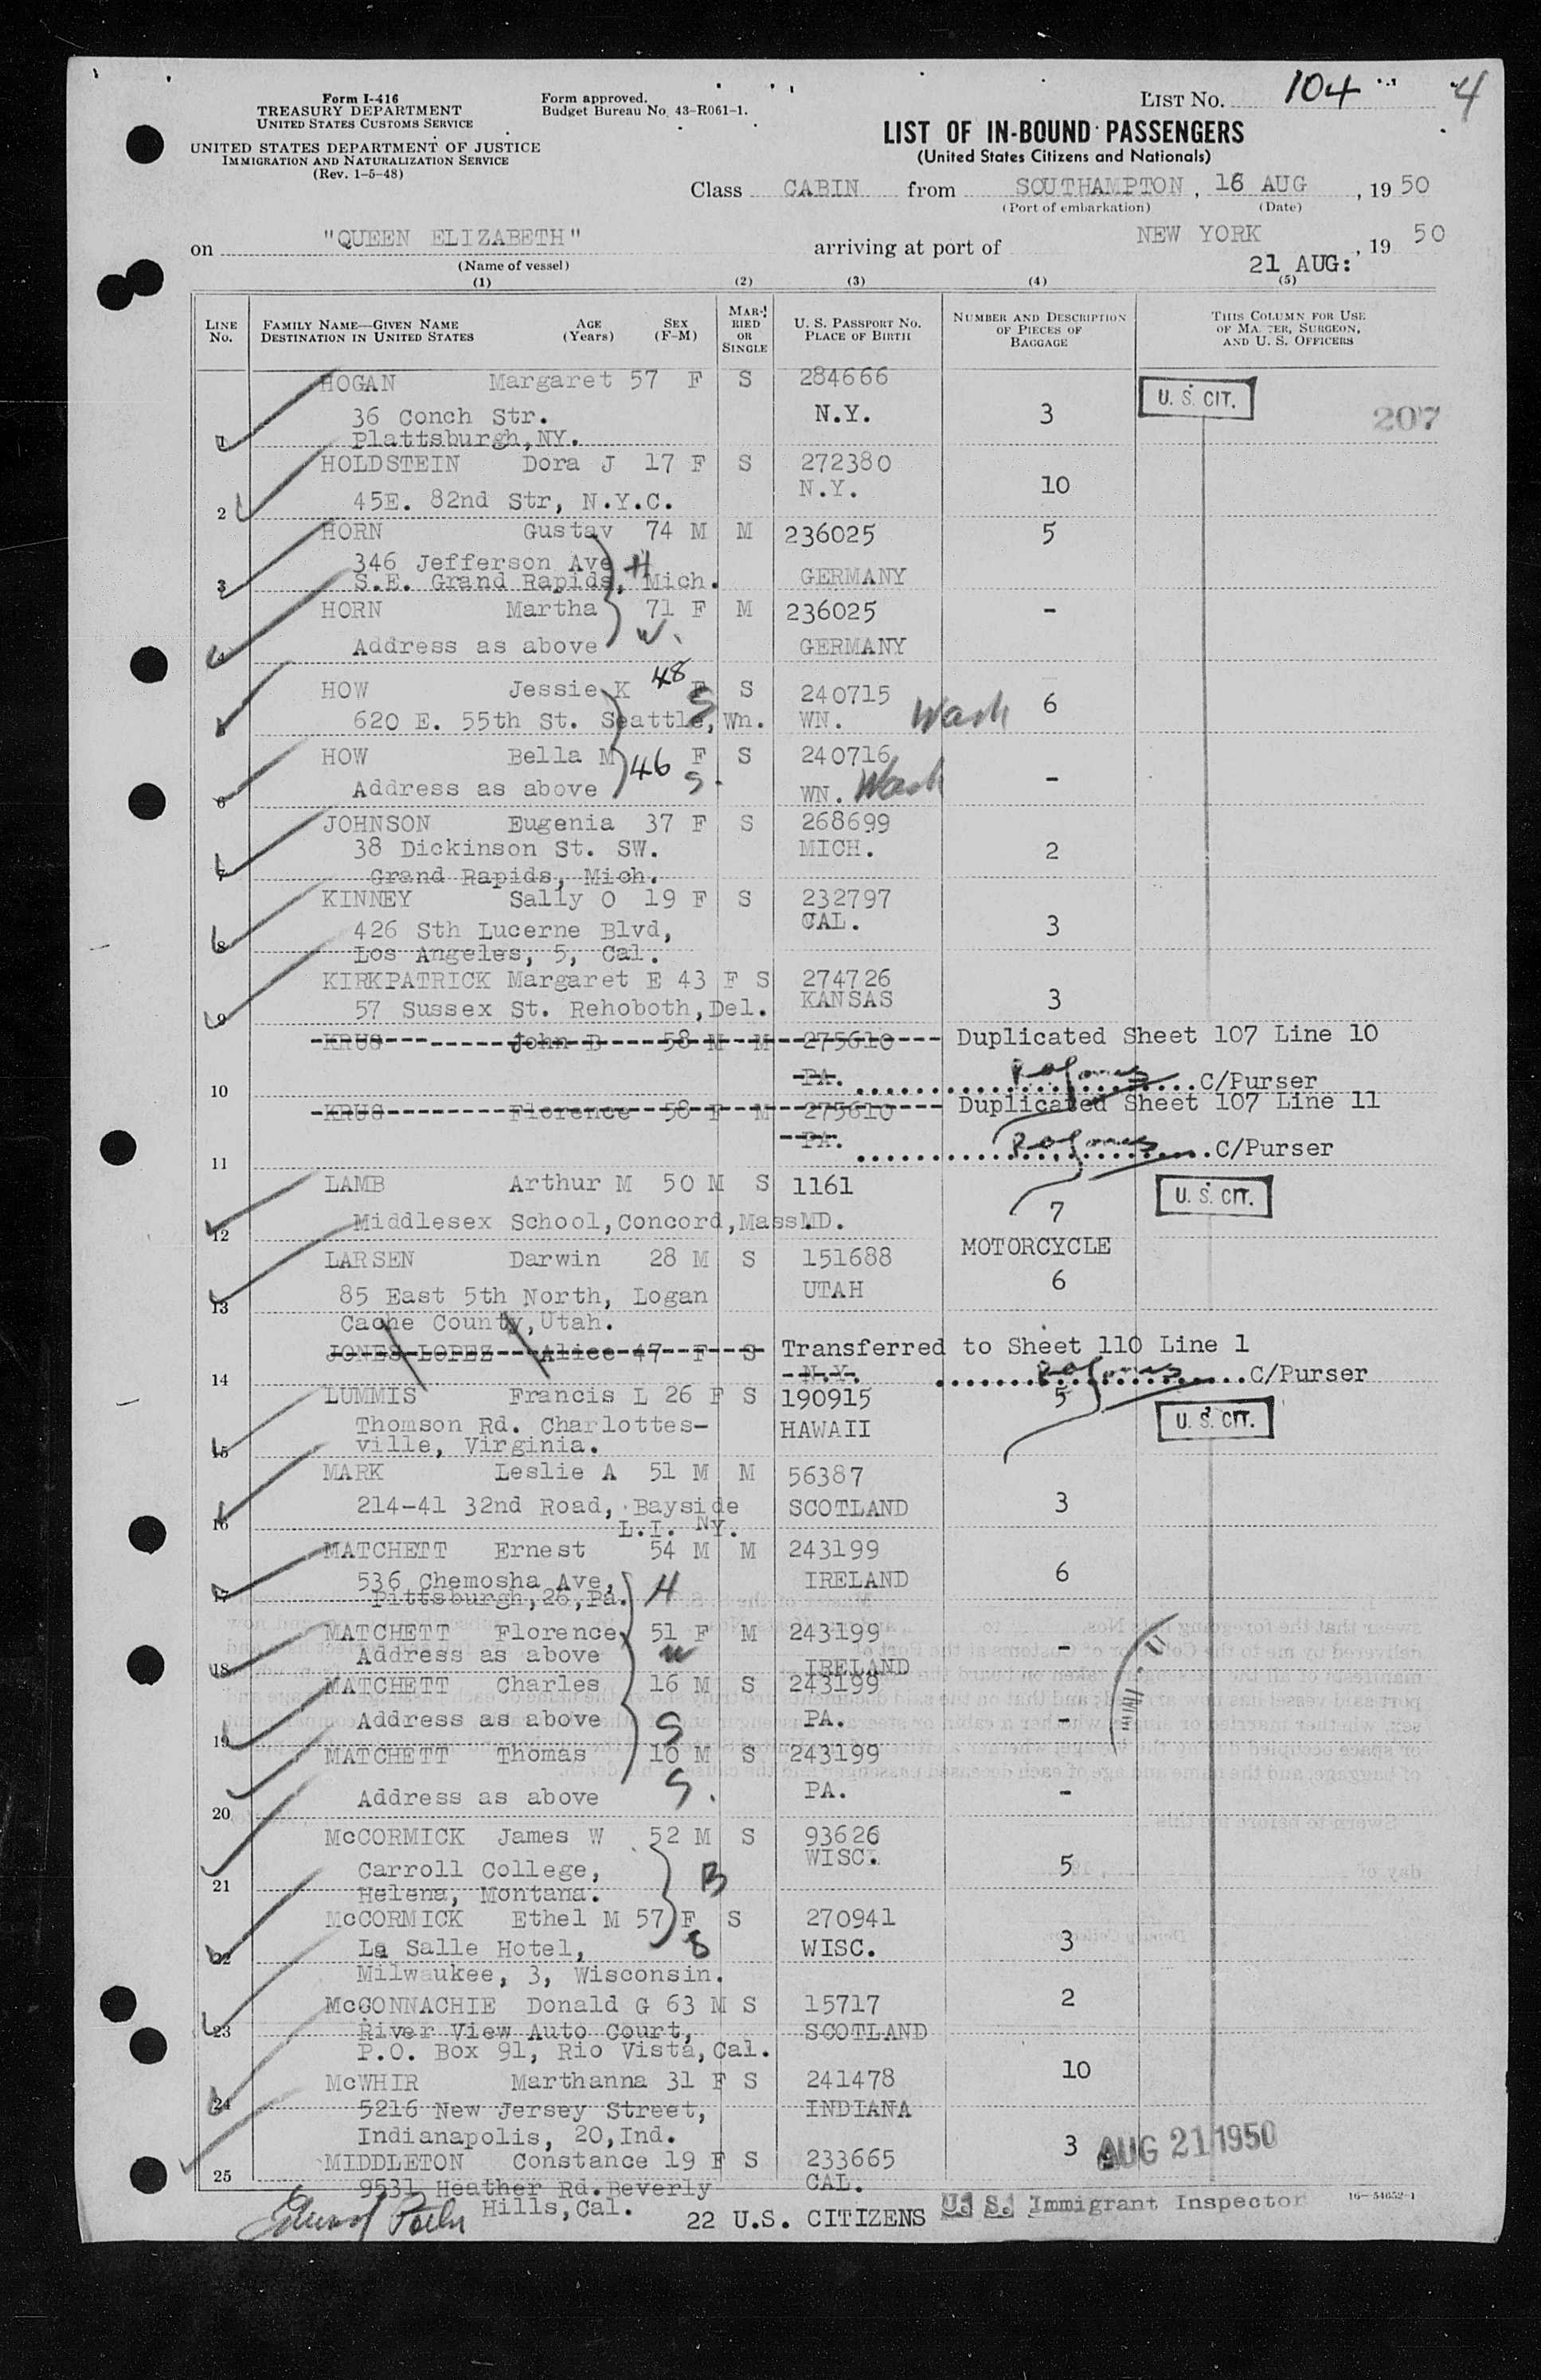 Form I-416
TREASURY DEPARTMENT
UNITED STATES CUSTOMS SERVICE
UNITED STATES DEPARTMENT OF JUSTICE
IMMIGRATION AND NATURALIZATION SERVICE
(Rev. 1-5-48)
Form approved.
Budget Bureau No. 43-R061-1.
LIST NO. 104 4
LIST OF IN-BOUND PASSENGERS
(United States Citizens and Nationals)
Class CABIN from SOUTHAMPTON, 16 AUG, 1950
(Port of embarkation) (Date)
on "QUEEN ELIZABETH" arriving at port of NEW YORK, 1950
(Name of vessel) 21 AUG:
(1) (2) (3) (4) (5)
LINE NO. FAMILY NAME—GIVEN NAME DESTINATION IN UNITED STATES AGE (Years) SEX (F-M) MARRIED OR SINGLE U. S. PASSPORT NO. PLACE OF BIRTH NUMBER AND DESCRIPTION OF PIECES OF BAGGAGE THIS COLUMN FOR USE OF MASTER, SURGEON, AND U. S. OFFICERS
HOGAN Margaret 57 F S 284666
36 Conch Str. N.Y. 3 U. S. CIT. 207
1 Plattsburgh,NY.
HOLDSTEIN Dora J 17 F S 272380
N.Y. 10
2 45E. 82nd Str, N.Y.C.
HORN Gustav 74 M M 236025 5
346 Jefferson Ave H
3 S.E. Grand Rapids, Mich. GERMANY
HORN Martha 71 F M 236025 -
4 Address as above W. GERMANY
HOW Jessie K 48 F S 240715 6
5 620 E. 55th St. Seattle, Wn. S WN. Wash
HOW Bella M 46 F S 240716 -
6 Address as above S. WN. Wash
JOHNSON Eugenia 37 F S 268699
38 Dickinson St. SW. MICH. 2
7 Grand Rapids, Mich.
KINNEY Sally O 19 F S 232797
426 Sth Lucerne Blvd, CAL. 3
8 Los Angeles, 5, Cal.
KIRKPATRICK Margaret E 43 F S 274726
9 57 Sussex St. Rehoboth,Del. KANSAS 3
KRUG John B 58 M M 275610 Duplicated Sheet 107 Line 10
10 PA. C/Purser
KRUG Florence 58 F M 275610 Duplicated Sheet 107 Line 11
11 PA. C/Purser
LAMB Arthur M 50 M S 1161 U. S. CIT.
12 Middlesex School,Concord,Mass MD. 7
LARSEN Darwin 28 M S 151688 MOTORCYCLE
13 85 East 5th North, Logan UTAH 6
Cache County,Utah.
JONES LOPEZ Alice 47 F S Transferred to Sheet 110 Line 1
14 N.Y. C/Purser
LUMMIS Francis L 26 F S 190915 5
Thomson Rd. Charlottes- HAWAII U. S. CIT.
15 ville, Virginia.
MARK Leslie A 51 M M 56387
214-41 32nd Road, Bayside SCOTLAND 3
16 L.I. NY.
MATCHETT Ernest 54 M M 243199
536 Chemosha Ave, H IRELAND 6
17 Pittsburgh,26,Pa.
MATCHETT Florence 51 F M 243199 -
18 Address as above W IRELAND
MATCHETT Charles 16 M S 243199
19 Address as above S PA. -
MATCHETT Thomas 10 M S 243199
20 Address as above S. PA. -
McCORMICK James W 52 M S 93626
Carroll College, B WISC. 5
21 Helena, Montana.
McCORMICK Ethel M 57 F S 270941
22 La Salle Hotel, S WISC. 3
Milwaukee, 3, Wisconsin.
McCONNACHIE Donald G 63 M S 15717 2
23 River View Auto Court, SCOTLAND
P.O. Box 91, Rio Vista, Cal.
McWHIR Marthanna 31 F S 241478 10
24 5216 New Jersey Street, INDIANA
Indianapolis, 20,Ind.
MIDDLETON Constance 19 F S 233665 3 AUG 21 1950
25 9531 Heather Rd.Beverly CAL.
Hills,Cal. 22 U.S. CITIZENS U. S. Immigrant Inspector 16-54652-1